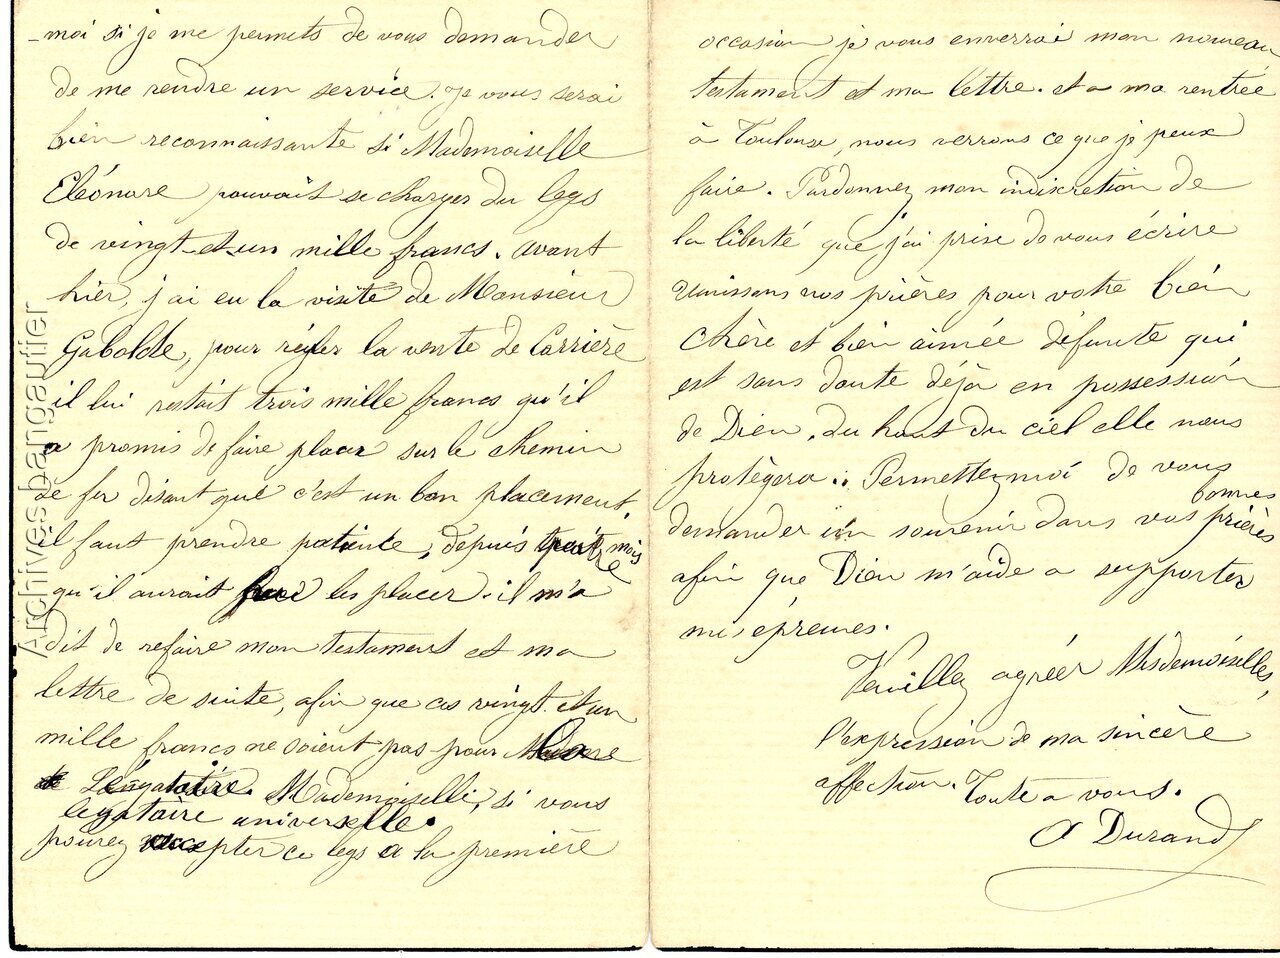 -moi si je me permets de vous demander
de me rendre un service. Je vous serai
bien reconnaissante si Mademoiselle
Eléonore pouvait se charger du legs
de vingt-et-un mille francs. avant
hier, j'ai eu la visite de Monsieur
Gabolde, pour régler la vente de Carrière
il lui restait trois mille francs qu'il
a promis de faire placer sur le chemin
de fer disant que c'est un bon placement,
il faut prendre patiente, depuis quatre mois
qu'il aurait les placer. il m'a
dit de refaire mon testament et ma
lettre de suite, afin que ces vingt et un
mille francs ne soient pas pour la
Légataire. Mademoiselle, si vous
legataire universelle.
pouvez accepter ce legs a la première
occasion je vous enverrai mon nouveau
testament et ma lettre. et a ma rentrée
à Toulouse, nous verrons ce que je peux
faire. Pardonnez mon indiscretion de
la liberté que j'ai prise de vous écrire
unissons nos prières pour votre bien
chère et bien aimée défunte qui
est sans doute déjà en possession
de Dieu. du haut du ciel elle nous
protègera.. Permettez moi de vous
demander un souvenir dans vos bonnes prières
afin que Dieu m'aide a supporter
mes épreuves.
Veuillez agréer Mesdemoiselles,
l'expression de ma sincère
affection. Toute a vous.
A Durand
Archives bangautier